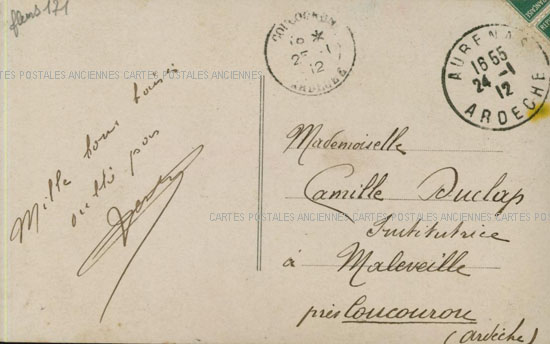 fleurs 171
COUCOURON
25-1
12
ARDECHE
AUBENAS
16 55
24 -1
12
ARDECHE
CARTES POSTALES ANCIENNES CARTES POSTALES ANCIENNES CARTES POSTALES ANCIENNES CARTES POSTALES ANCIENNES
Mille bons
pas
Mademoiselle
Camille Duclap
CARTES POSTALES ANCIENNES CARTES POSTALES ANCIENNES CARTES POSTALES ANCIENNES
Institutrice
à Maleveille
près Coucouron
(Ardèche)